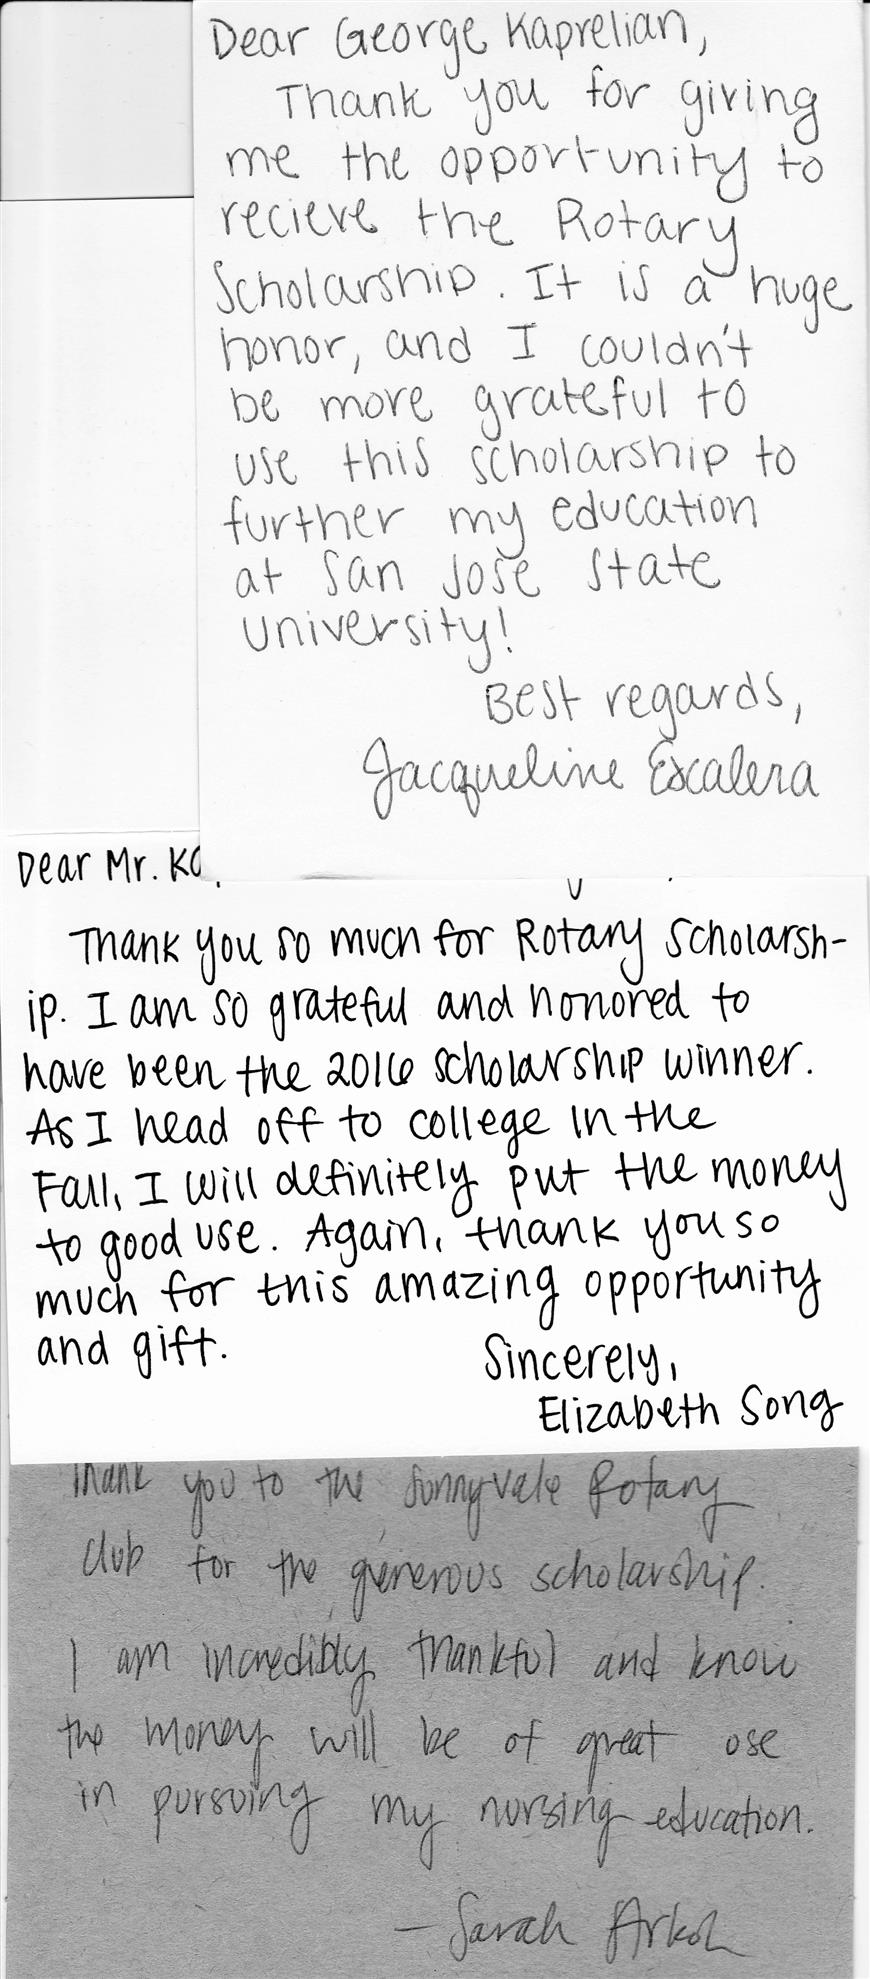 Dear George Kaprelian,
Thank you for giving
me the opportunity to
recieve the Rotary
Scholarship. It is a huge
honor, and I couldn't
be more grateful to
use this scholarship to
further my education
at San Jose State
University!
Best regards,
Jacqueline Escalera
Dear Mr. Ka
Thank you so much for Rotary Scholarsh-
ip. I am so grateful and honored to
have been the 2016 scholarship winner.
As I head off to college in the
Fall, I will definitely put the money
to good use. Again, thank you so
much for this amazing opportunity
and gift.
Sincerely,
Elizabeth Song
Thank you to the Sunnyvale Rotary
Club for the generous scholarship.
I am incredibly thankful and know
the money will be of great use
in pursuing my nursing education.
- Sarah